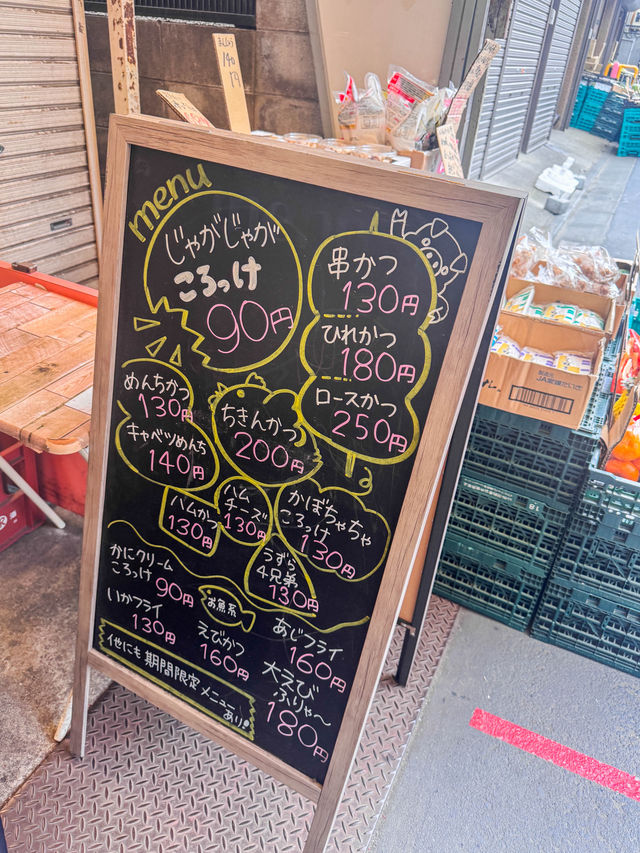 menu
じゃがじゃが
ころっけ
90円
串かつ
130円
ひれかつ
180円
ロースかつ
250円
めんちかつ
130円
キャベツめんち
140円
ちきんかつ
200円
ハムかつ
130円
ハム
チーズ
130円
かぼちゃちゃ
ころっけ
130円
うずら
4兄弟
130円
かにクリーム
ころっけ 90円
お魚系
いかフライ
130円
えびかつ
160円
あじフライ
160円
大えび
ふりゃ〜
180円
他にも期間限定メニュー
あり
140円